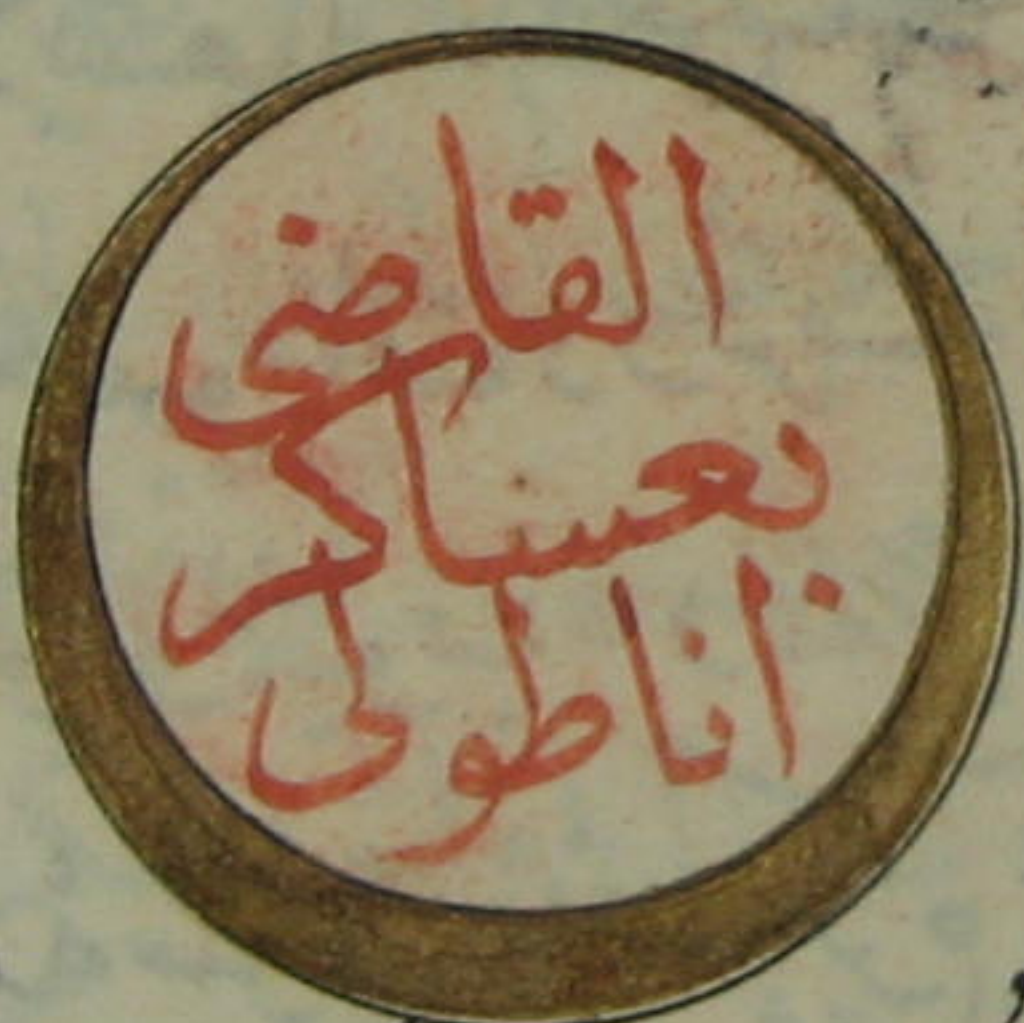 القاضی
بعساكر
اناطولی